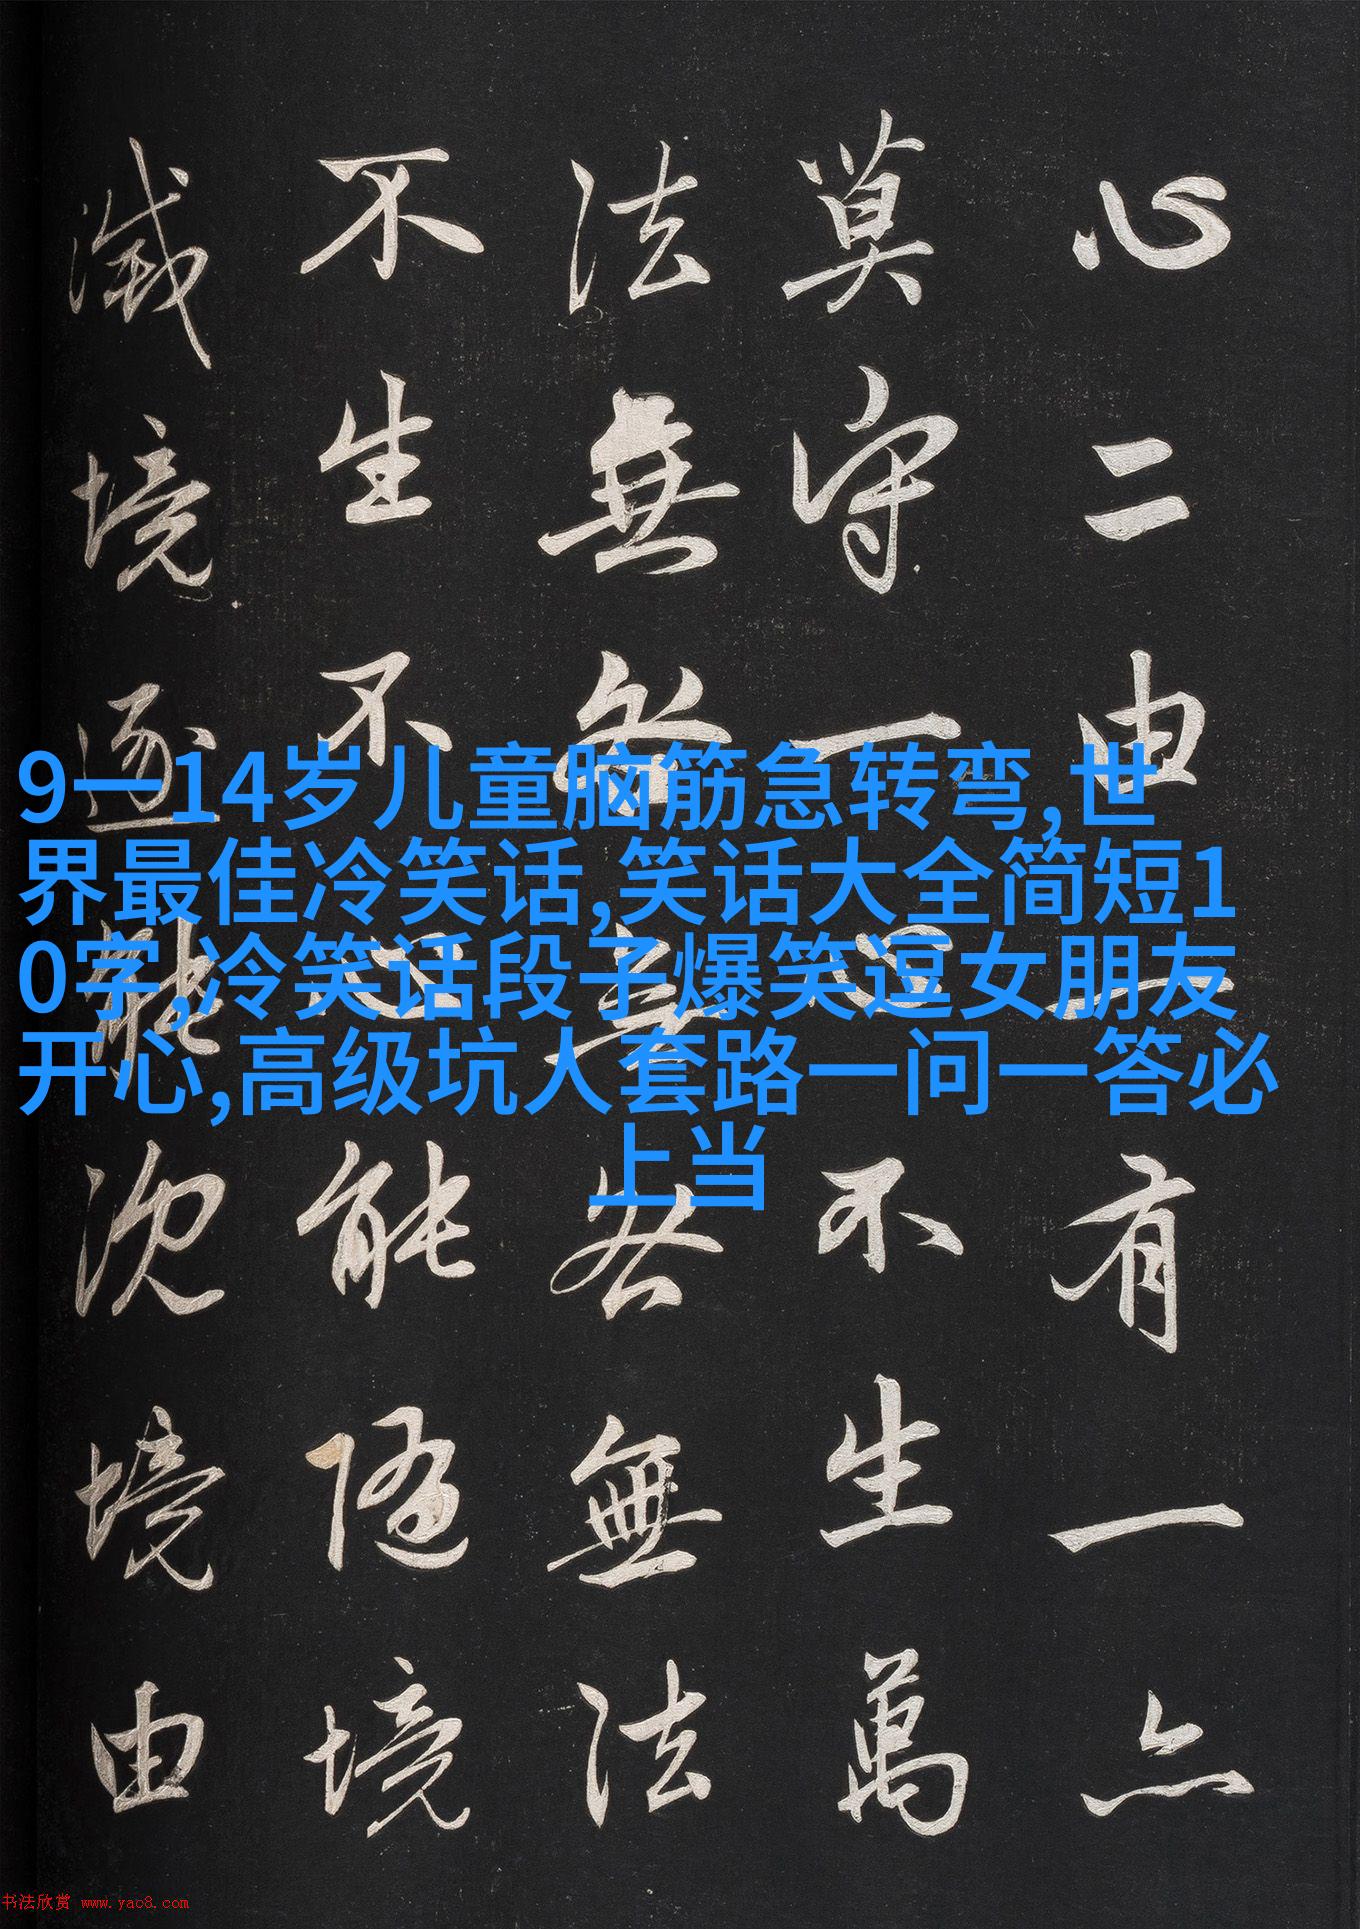 心二由一有一亦
莫守一心不生萬
法無咎無咎無法
不生不心能隨境
滅境逐能沉境由
9一14岁儿童脑筋急转弯,世
界最佳冷笑话,笑话大全简短1
0字,冷笑话段子爆笑逗女朋友
开心,高级坑人套路一问一答必
上当
书法欣赏 www.yac8.com